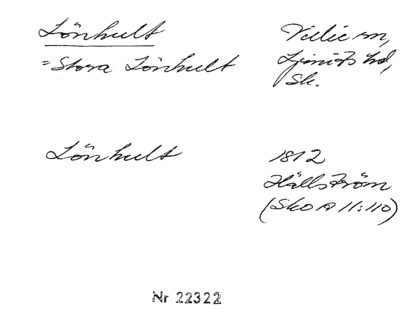 Lönhult
= Stora Lönhult
Lönhult
Nr 22322
Välie sn,
Ljunits hd,
Sk.
1812
Hällström
(Sko A 11:110)